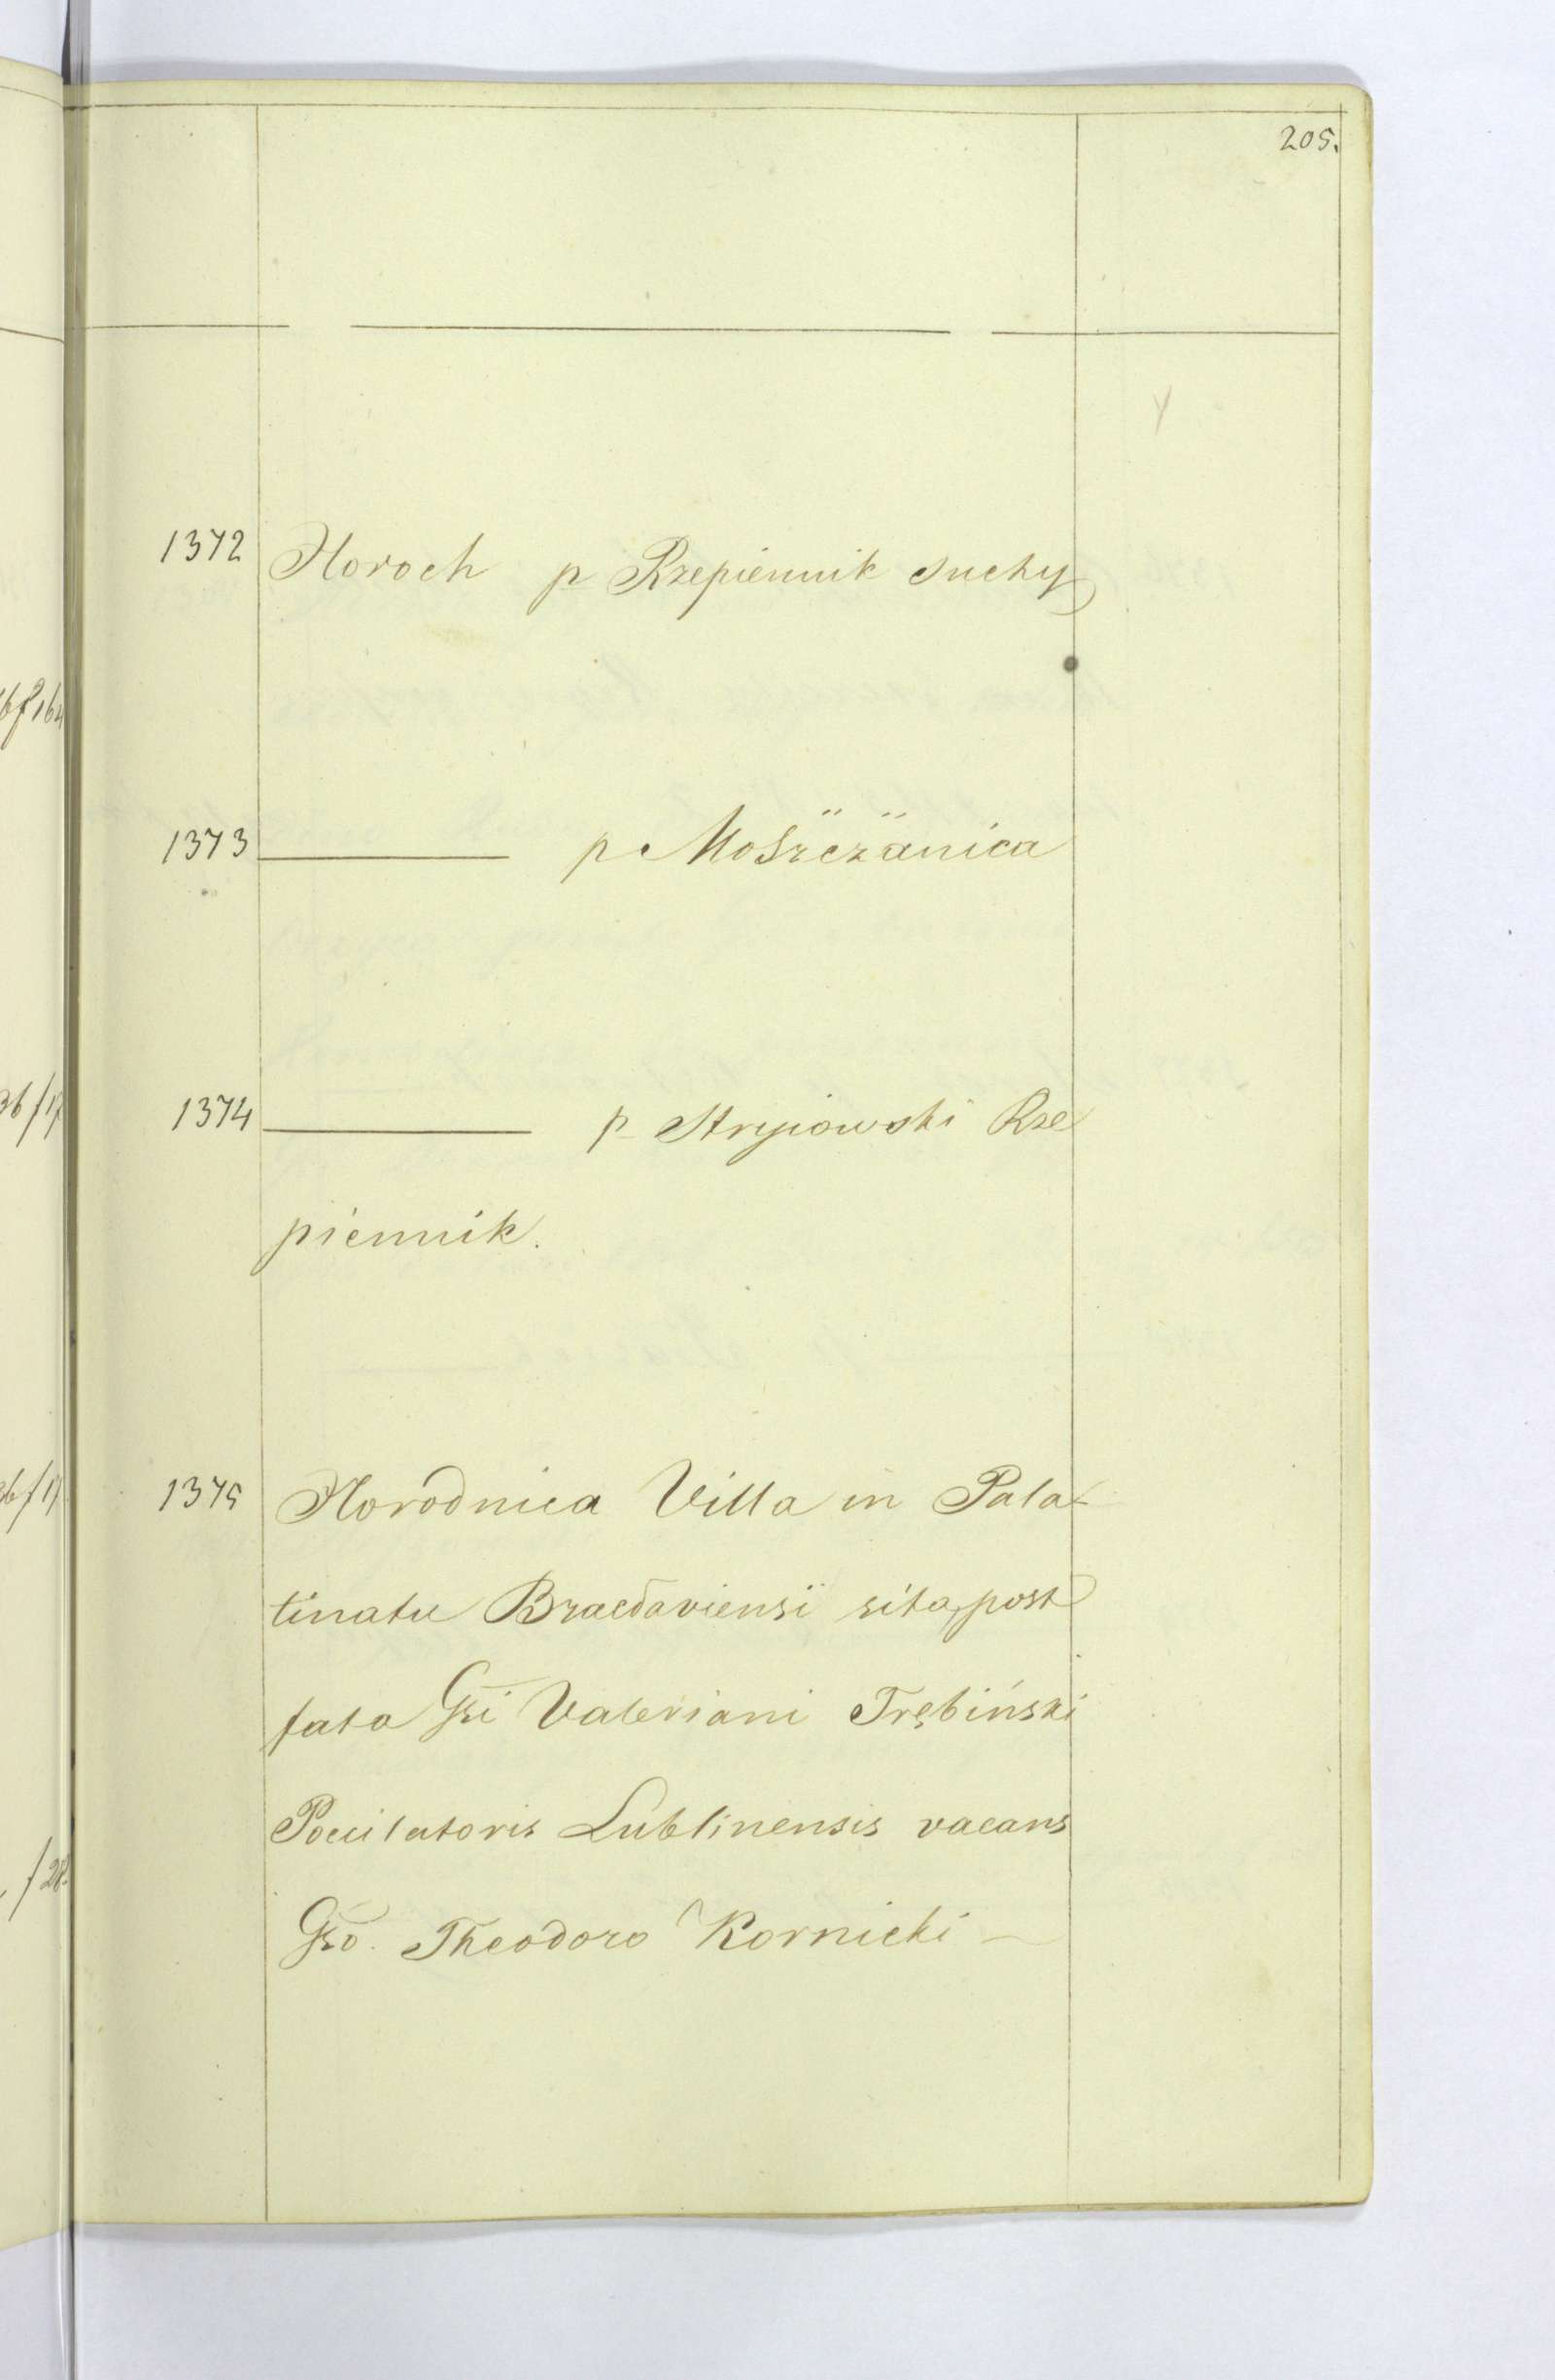 205.
1372 Horoch p Rzepiennik suchy
1373 ——— p Moszczänica
1374 ——— p Stryiowski Rze
piennik.
1375 Horodnica Villa in Pala-
tinatu Bracdaviensi sita, post
fata Gsi Valeriani Trębiński
Pocilatoris Lublinensis vacans
Gso. Theodoro Kornicki —